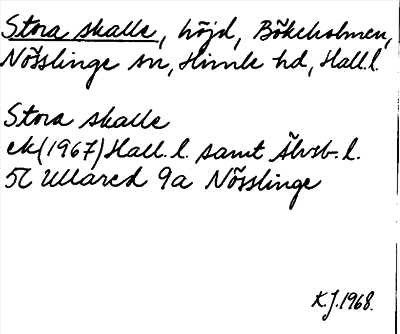 Stora skalle, höjd, Bökeholmen,
Nösslinge sn, Himle hd, Hall.l.
Stora skalle
ek(1967)Hall.l. samt Älvsb.l.
5C Ullared 9a Nösslinge
K.J.1968.